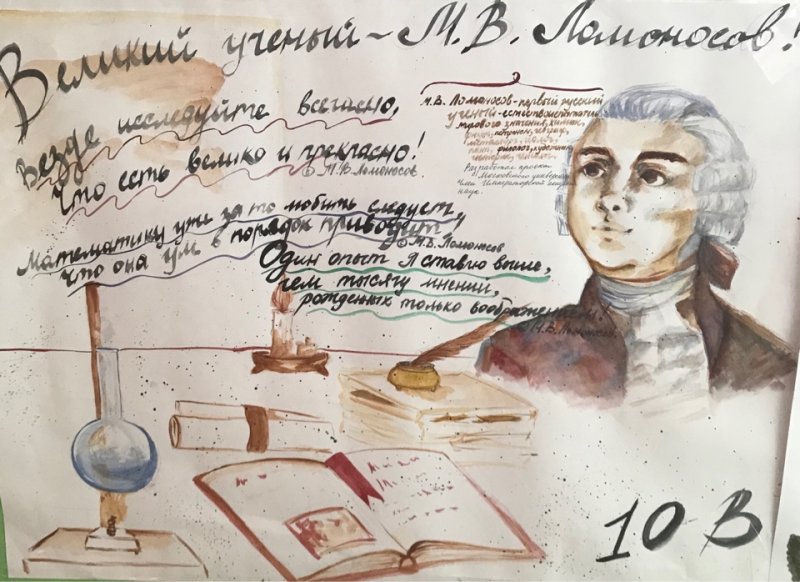 Великий ученый - М.В. Ломоносов!
Везде исследуйте всечасно,
Что есть велико и прекрасно!
© М.В. Ломоносов
Математику уже за то любить следует,
что она ум в порядок приводит
© М.В. Ломоносов
Один опыт я ставлю выше,
чем тысячу мнений,
рожденных только воображением!
М.В. Ломоносов
М.В. Ломоносов - первый русский
ученый - естествоиспытатель
мирового значения, химик,
физик, астроном, географ,
металлург, геолог,
поэт, филолог, художник,
Разработал проект
Московского университета
Член Императорской академии
наук.
10 В